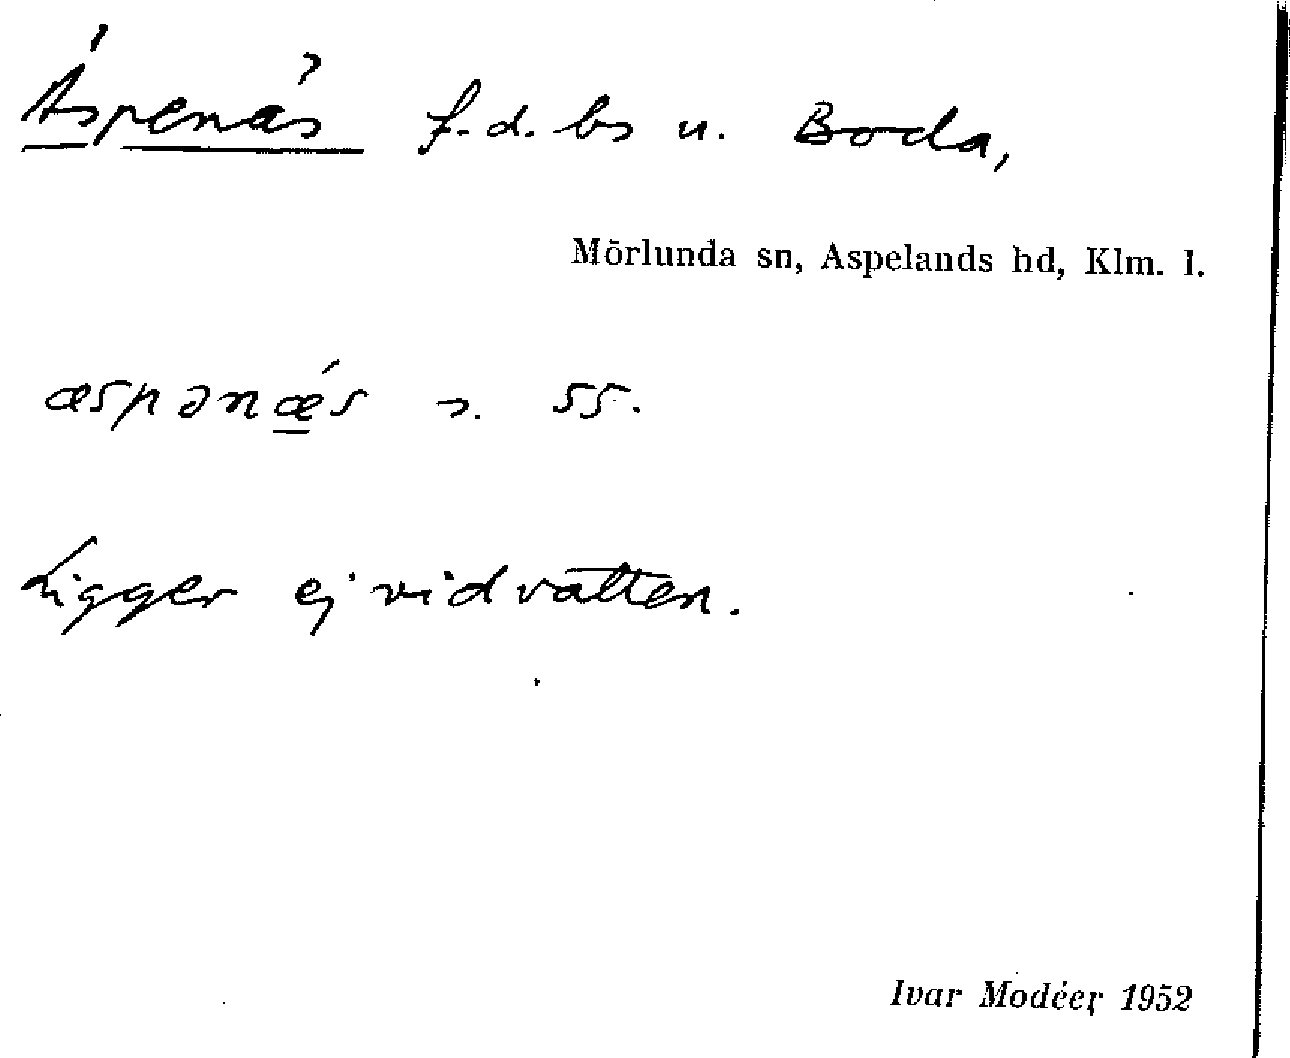 Äspenäs f.d. bs u. Boda,
Mörlunda sn, Aspelands hd, Klm. l.
æspənǽs ss.
Ligger ej vid vatten.
Ivar Modéer 1952